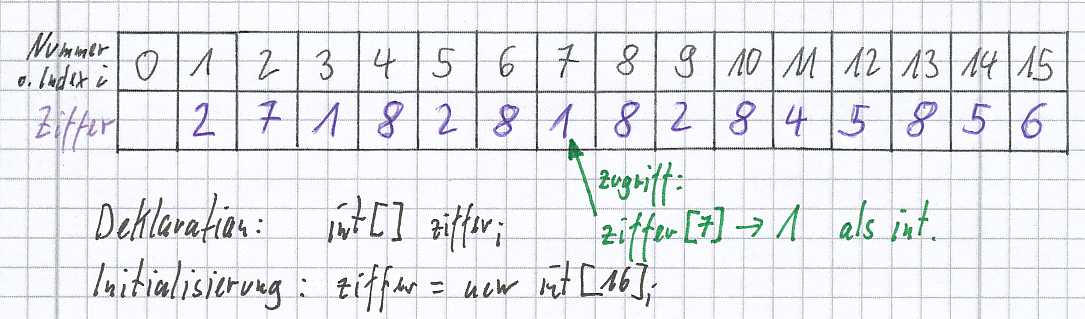 Nummer
o. Index i 0 1 2 3 4 5 6 7 8 9 10 11 12 13 14 15
Ziffer 2 7 1 8 2 8 1 8 2 8 4 5 8 5 6
Zugriff:
Deklaration: int[] ziffer; ziffer[7] → 1 als int.
Initialisierung: ziffer = new int[16];